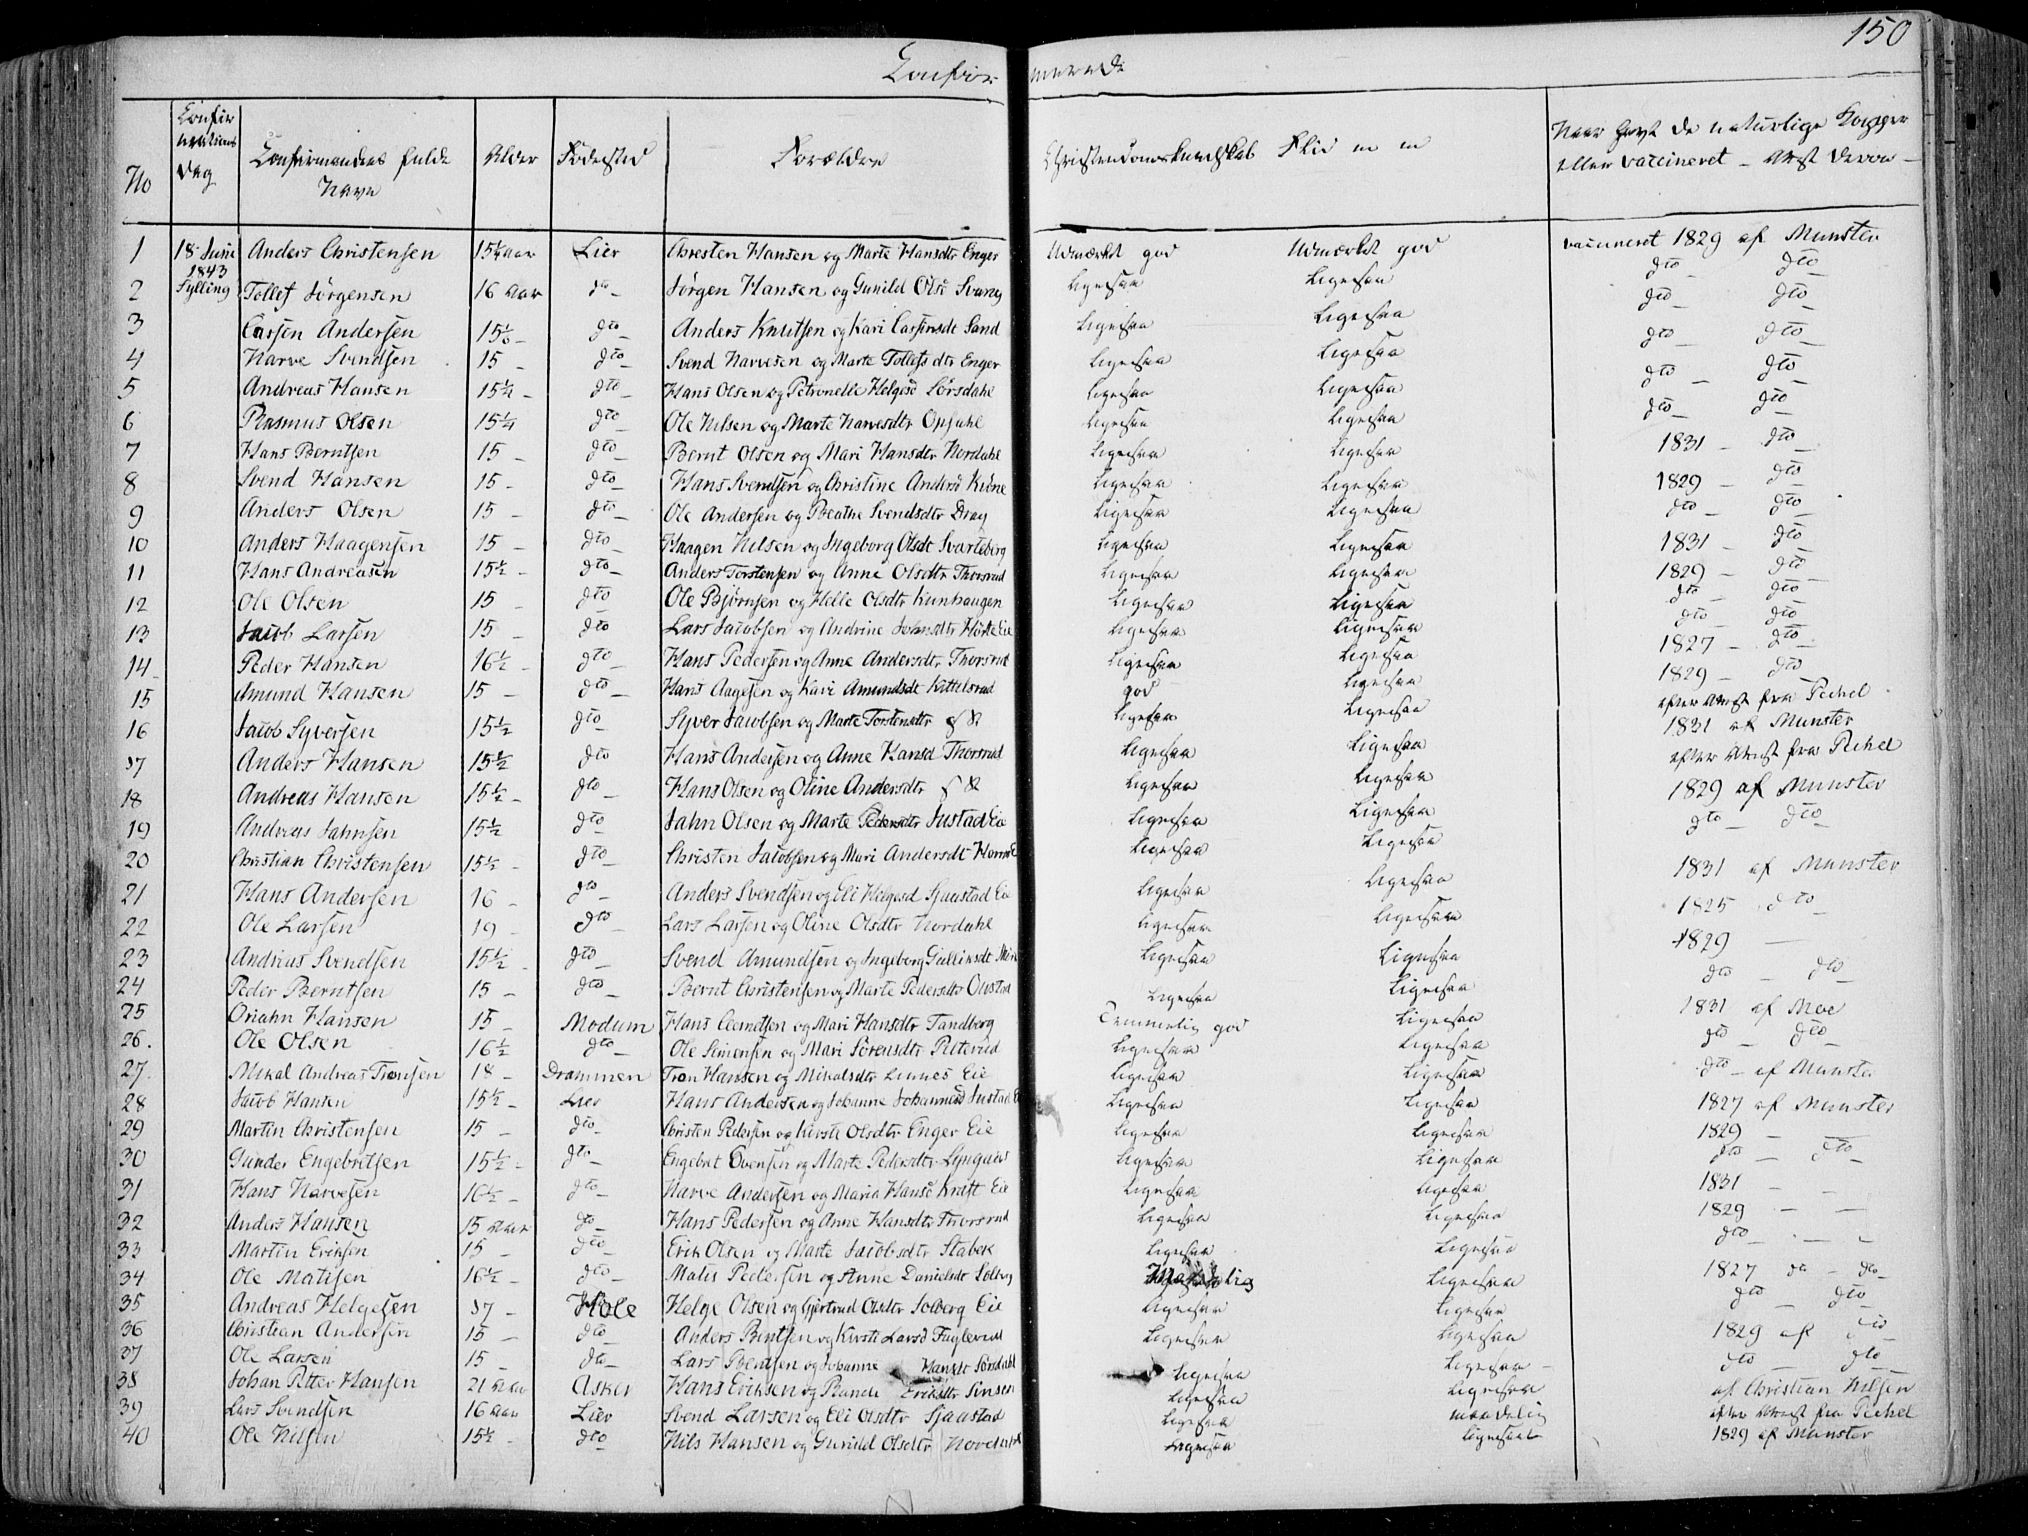 150
Confirmerede
No
Confirmations Dag
Confirmandens fulde Navn
Alder
Fødested
Forældre
Christendomskundskab
Flid m m
Naar havt de naturlige Kopper eller vaccineret - Attest derom -
1 18 Juni 1843 Sylling Anders Christensen 15¼ aar Lier Christen Hansen og Marte Hansdtr Enger Udmærket god Udmærket god vaccineret 1829 af Munster
2 Tollef Jørgensen 16 aar dto Jørgen Hansen og Gunild Olsd Svang Ligesaa Ligesaa dto - dto
3 Carsen Andersen dto Anders Knutsen og Kari Carsensdt Sand Ligesaa Ligesaa dto - dto
4 Narve Svendsen 15 - dto Svend Narvesen og Marte Tollefsdtr Enger Ligesaa Ligesaa dto - dto
5 Andreas Hansen 15¼ - dto Hans Olsen og Petronelle Helgesd Sørsdahl Ligesaa Ligesaa dto - dto
6 Rasmus Olsen 15¼ dto Ole Nilsen og Marte Narvesdtr Opsahl Ligesaa Ligesaa dto - dto
7 Hans Berntsen 15 - dto Bernt Olsen og Mari Hansdtr Nordahl Ligesaa Ligesaa 1831 - dto
8 Svend Hansen 15 - dto Hans Svendsen og Christine Andersd Ligesaa Ligesaa 1829 - dto
9 Anders Olsen 15 - dto Ole Andersen og Beathe Svendsdtr Drag Ligesaa Ligesaa dto - dto
10 Anders Haagensen 15 - dto Haagen Nilsen og Ingeborg Olsdt Svarteberg Ligesaa Ligesaa 1831 - dto
11 Hans Andreasen 15½ - dto Anders Torstensen og Anne Olsdtr Thorsrud Ligesaa Ligesaa 1829 - dto
12 Ole Olsen 15 - dto Ole Bjørnsen og Helle Olsdtr Ligesaa Ligesaa dto - dto
13 Jacob Larsen 15 - dto Lars Jacobsen og Andrine Johnsdtr Eie Ligesaa Ligesaa dto - dto
14 Peder Hansen 16½ - dto Hans Pedersen og Anne Andersdtr Thorsrud Ligesaa Ligesaa 1827 - dto
15 Amund Hansen 15 - dto Hans Aagesen og Kari Amundsdt Kittelsrud god Ligesaa 1829 - dto
16 Jacob Syversen 15½ dto Syver Jacobsen og Marte Torstensdtr Ligesaa Ligesaa efter Attest fra Pichel
17 Anders Hansen 15½ dto Hans Andersen og Anne Hansd Thorsrud Ligesaa Ligesaa 1831 af Munster
18 Andreas Hansen 15½ - dto Hans Olsen og Oline Andersdtr Ligesaa Ligesaa efter Attest fra Pichel
19 Andreas Jahnsen 15½ dto Jahn Olsen og Marte Pedersdtr Justad Eie Ligesaa Ligesaa 1829 af Munster
20 Christian Christensen 15½ - dto Christen Jacobsen og Mari Andersdt Ligesaa Ligesaa dto - dto
21 Hans Andersen 16 - dto Anders Svendsen og Eli Helgesd Sjaastad Eie Ligesaa Ligesaa 1831 af Munster
22 Ole Larsen 19 - dto Lars Larsen og Oline Olsdtr Nordahl Ligesaa Ligesaa 1825 dto
23 Andreas Svendsen 15½ - dto Svend Amundsen og Ingeborg Gulliksdt Ligesaa Ligesaa 1829 —
24 Peder Berntsen 15 - dto Bernt Christensen og Marte Pedersdtr Oustad Ligesaa Ligesaa dto - dto
25 Hansen 15 - Modum Hans Clemetsen og Mari Hansdtr Tandberg Temmelig god Ligesaa 1831 af Moe
26. Ole Olsen 16½ dto Ole Simensen og Mari Sørensdtr Ligesaa Ligesaa dto - dto
27. Mikal Andreas Tronsen 18 - Drammen Tron Hansen og Mikalsdtr Linnes Eie Ligesaa Ligesaa dto - af Munster
28 Jacob Hansen 15½ - Lier Hans Andersen og Johanne Johannesd Justad E Ligesaa Ligesaa 1827 af Munster
29 Martin Christensen 15 - dto Christen Pedersen og Kirste Olsdtr Enger Eie Ligesaa Ligesaa 1829 —
30 Gunder Engebretsen 15½ - dto Engebret Evensen og Marte Pedersdtr Ligesaa Ligesaa dto - dto
31 Hans Narvesen 16½ - dto Narve Andersen og Maria Hansd Kraft Eie Ligesaa Ligesaa 1831 - —
32 Anders Hansen 15 aar dto Hans Pedersen og Anne Hansdtr Thorsrud Ligesaa Ligesaa 1829 - —
33 Martin Eriksen 15 - dto Erik Olsen og Marte Jacobsdtr Stabek Ligesaa Ligesaa dto - -
34 Ole Matisen 16½ - dto Matis Pedersen og Anne Danielsdt Solberg Maadelig Ligesaa 1827 dto - dto
35 Andreas Helgesen 17 - Hole Helge Olsen og Gjertrud Olsdtr Solberg Eie Ligesaa Ligesaa dto - dto
36 Christian Andersen 15 - dto Anders Bentsen og Kirsti Larsd Fuglerud Ligesaa Ligesaa 1829 af dto
37 Ole Larsen 15 - dto Lars Bentsen og Johanne Hansdt Sørsdahl Ligesaa Ligesaa dto - dto
38 Johan Petter Hansen 21 aar Asker Hans Eriksen og Eriksdtr Ligesaa Ligesaa af Christian Nilsen
39 Lars Svendsen 16 aar Lier Svend Larsen og Eli Olsdtr Sjaastad Ligesaa maadelig efter Attest fra Pichel
40 Ole Nilsen 15½ - dto Nils Hansen og Gunild Olsdtr Ligesaa Ligesaa 1829 af Munster